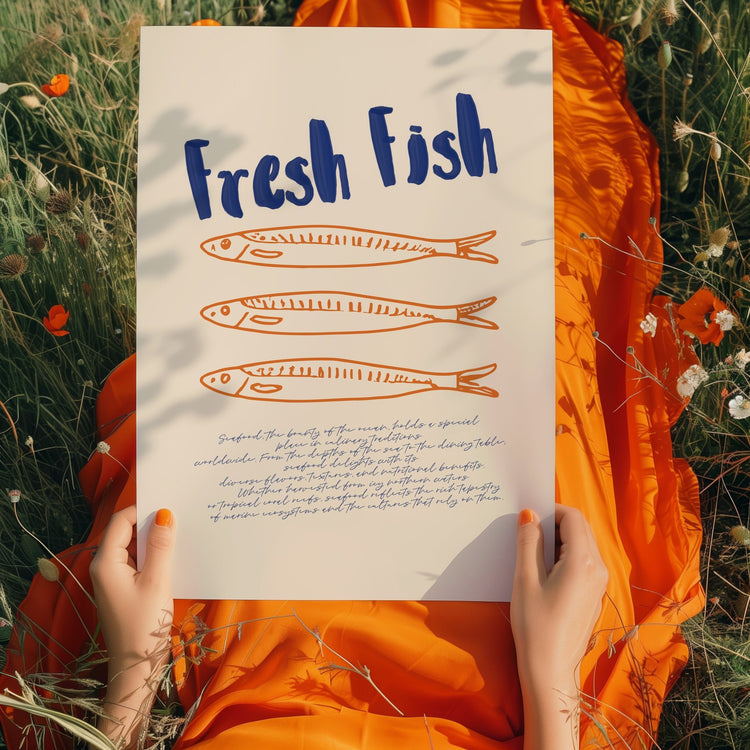 Fresh Fish
Seafood, the bounty of the ocean, holds a special
place in culinary traditions
worldwide. From the depths of the sea to the dining table,
seafood delights with its
diverse flavors, textures, and nutritional benefits.
Whether harvested from icy northern waters
or tropical coral reefs, seafood reflects the rich tapestry
of marine ecosystems and the cultures that rely on them.